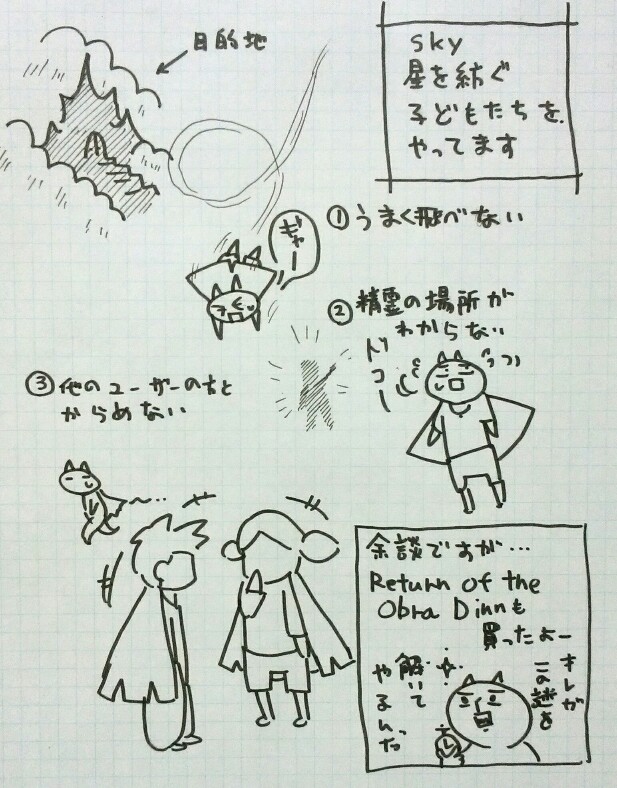 sky
星を紡ぐ
子どもたちを
やってます
目的地
①うまく飛べない
ギャー
②精霊の場所が
わからない
ドコー
③他のユーザーの方と
からめない
余談ですが…
Return of the
Obra Dinnも
買ったよー
オレが
この謎を
解いて
やるんだっ